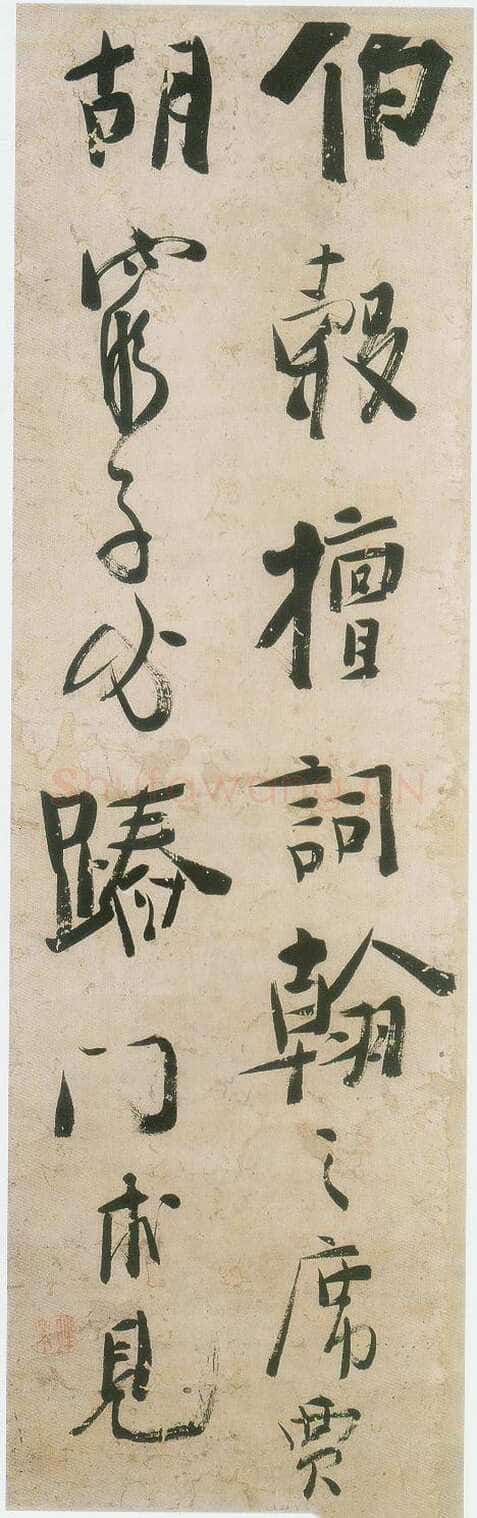 伯穀擅詞翰之席賈
胡子必门求見
Shufawang.CN